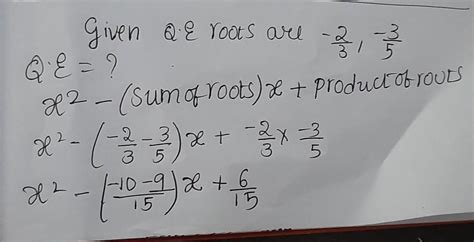 Given Q.E roots are -2/3, -3/5
Q.E = ?
x² - (sum of roots)x + product of roots
x² - (-2/3 - 3/5)x + -2/3 × -3/5
x² - (-10-9/15)x + 6/15